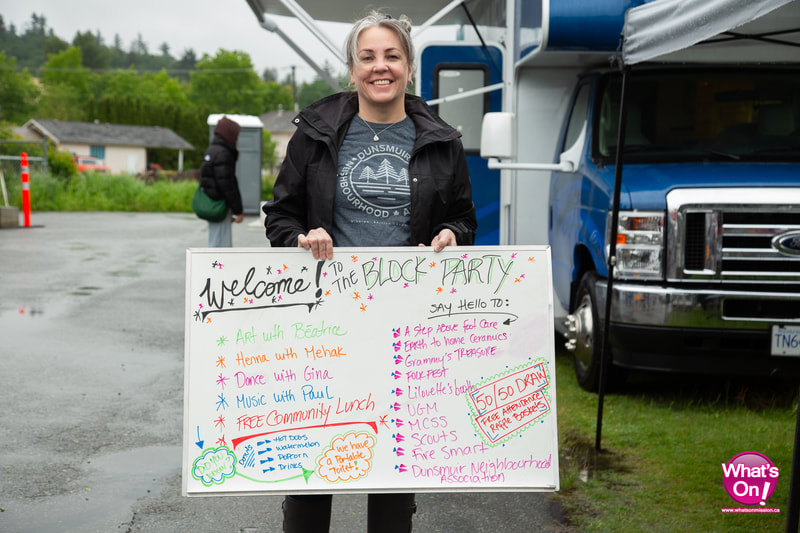 DUNSMUIR
NEIGHBOURHOOD A
Welcome! TO THE BLOCK PARTY
Art with Béatrice
Henna with Mehak
Dance with Gina
Music with Paul
FREE Community Lunch
HOT DOGS
Watermelon
POPCORN
DRINKS
DID YOU KNOW?
We have a Portable Toilet!
SAY HELLO TO:
A STEP Above Foot Care
EARTH to home Ceramics
Grammy's TREASURE
FOLKFEST
UGM
MCSS
Scouts
Fire Smart
Dunsmuir Neighbourhood
Association
50/50 DRAW
FREE Attendance
Raffle Baskets
Ford
TN6
What's
On!
www.whatsonmission.ca